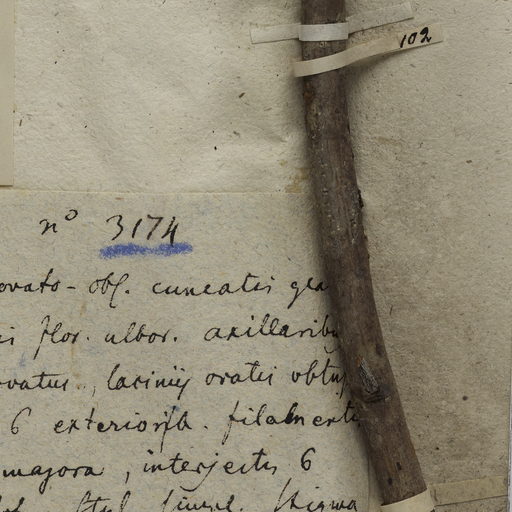 102
n° 3174
ovato-obl. cuneatis gla
is flor. albor. axillarib
ovatus, laciniis ovatis obtus
6 exteriorib. filament
majora, interjectis 6
Styl. simpl. Stigma